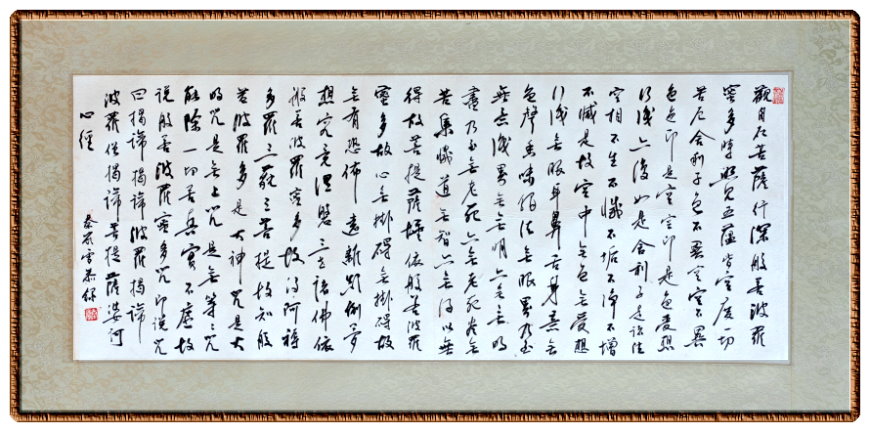 觀自在菩薩行深般若波羅
蜜多時照見五蘊皆空度一切
苦厄舍利子色不異空空不異
色色即是空空即是色受想
行識亦復如是舍利子是諸法
空相不生不滅不垢不淨不增
不減是故空中無色無受想
行識無眼耳鼻舌身意無
色聲香味觸法無眼界乃至
無意識界無無明亦無無明
盡乃至無老死亦無老死盡無
苦集滅道無智亦無得以無
得故菩提薩埵依般若波羅
蜜多故心無掛礙無掛礙故
無有恐怖遠離顛倒夢
想究竟涅槃三世諸佛依
般若波羅蜜多故得阿耨
多羅三藐三菩提故知般
若波羅多是大神咒是大
明咒是無上咒是無等々咒
能除一切苦真實不虛故
說般若波羅蜜多咒即說咒
曰揭諦揭諦波羅揭諦
波羅僧揭諦菩提薩婆訶
心經
秦雪恭錄